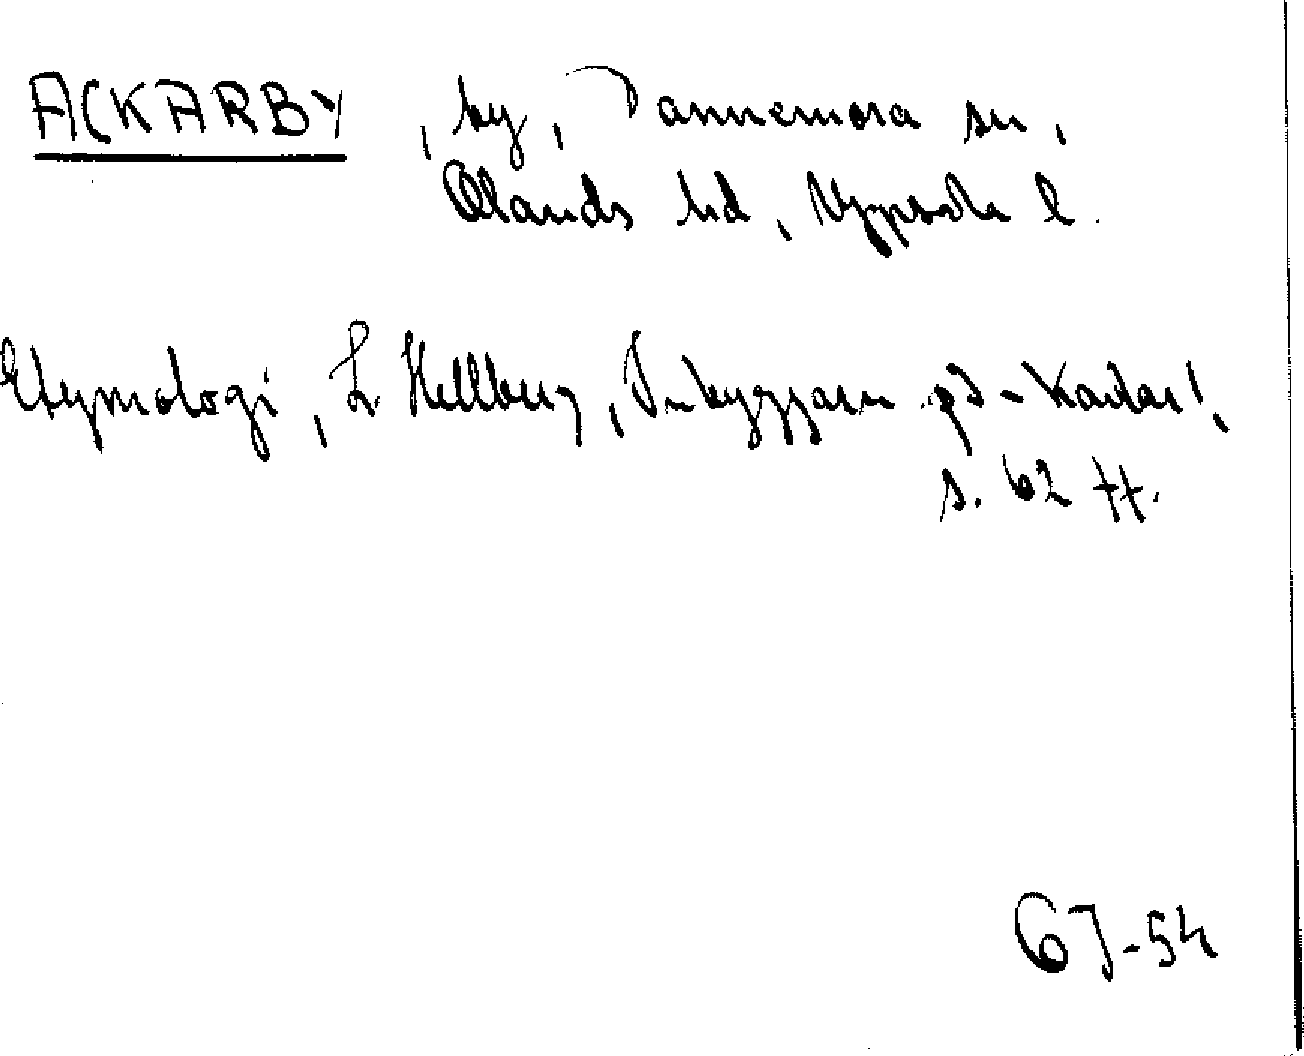 ACKARBY, by, Dannemora sn,
Olands hd, Uppsala l.
Etymologi, L Hellberg, Inbyggarn. på -karlar,
s. 62 ff.
67-54